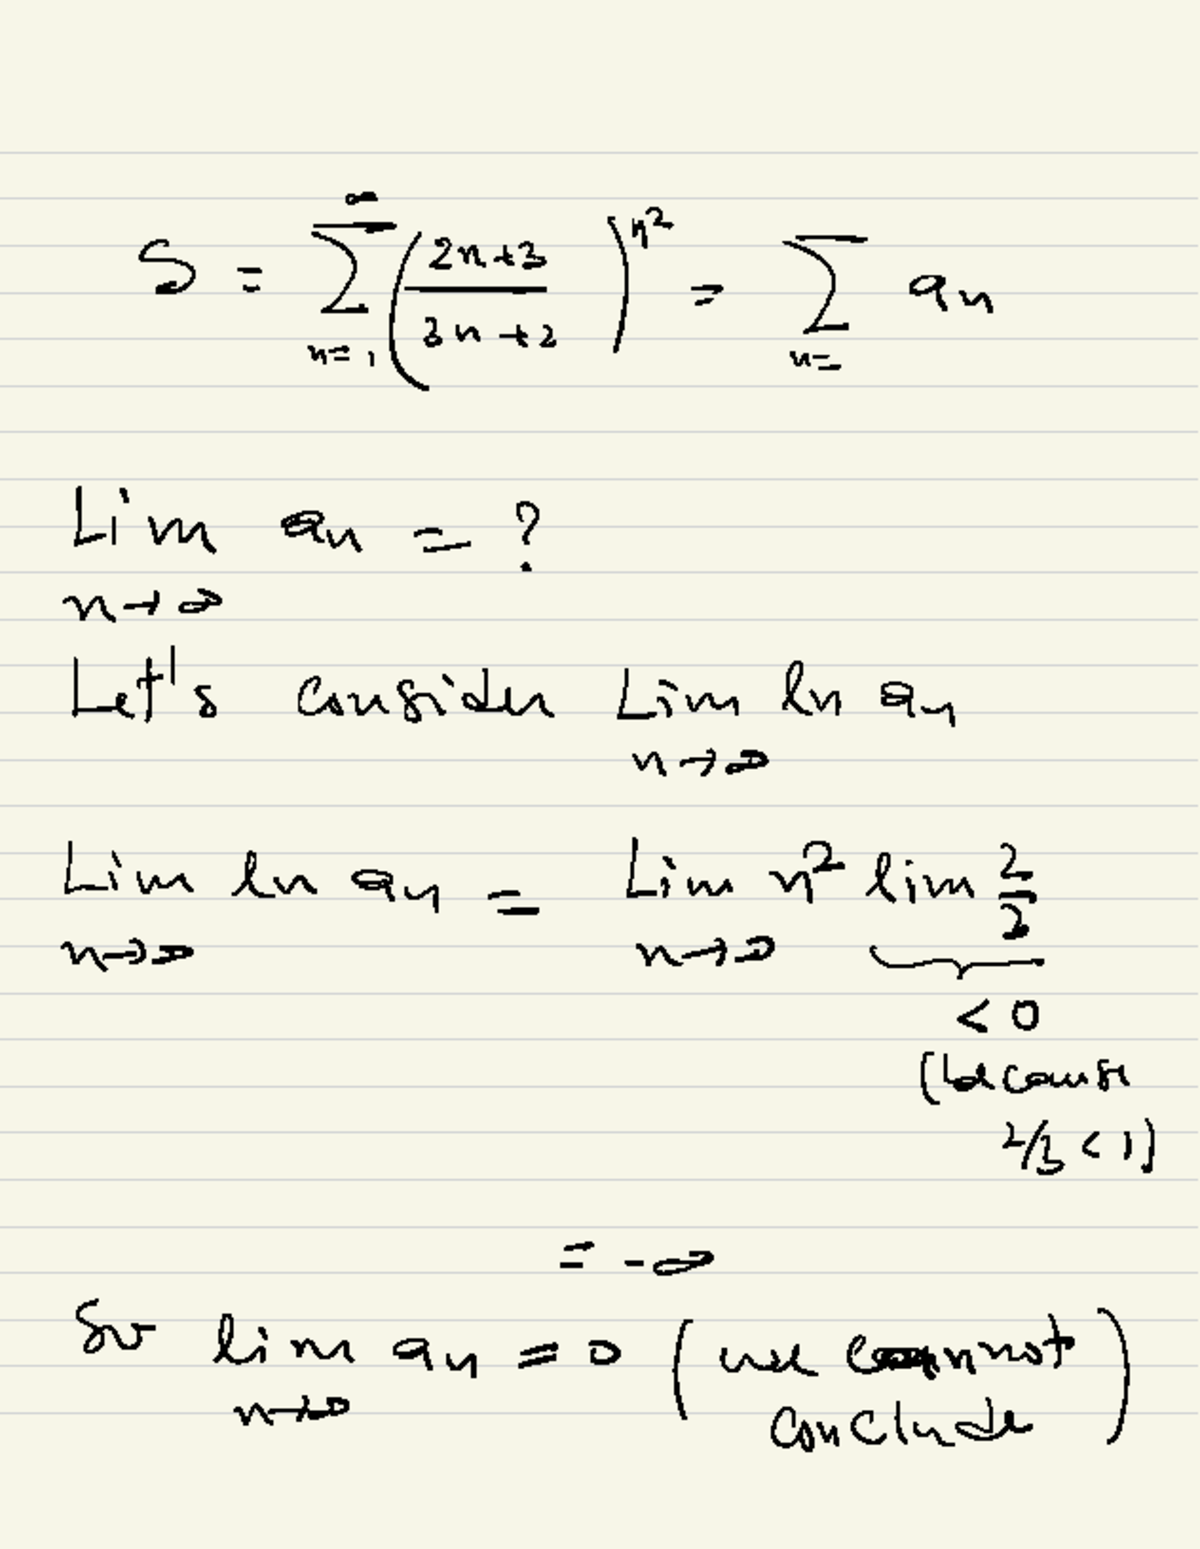 S = ∑_{n=1}^{∞} ( (2n+3)/(3n+2) )^{n²} = ∑_{n=} aₙ
Lim aₙ = ?
n→∞
Let's consider Lim ln aₙ
n→∞
Lim ln aₙ = Lim n² lim 2/3
n→∞ n→∞
< 0
(because
2/3 < 1)
= -∞
So lim aₙ = 0 (we cannot
n→∞ conclude)